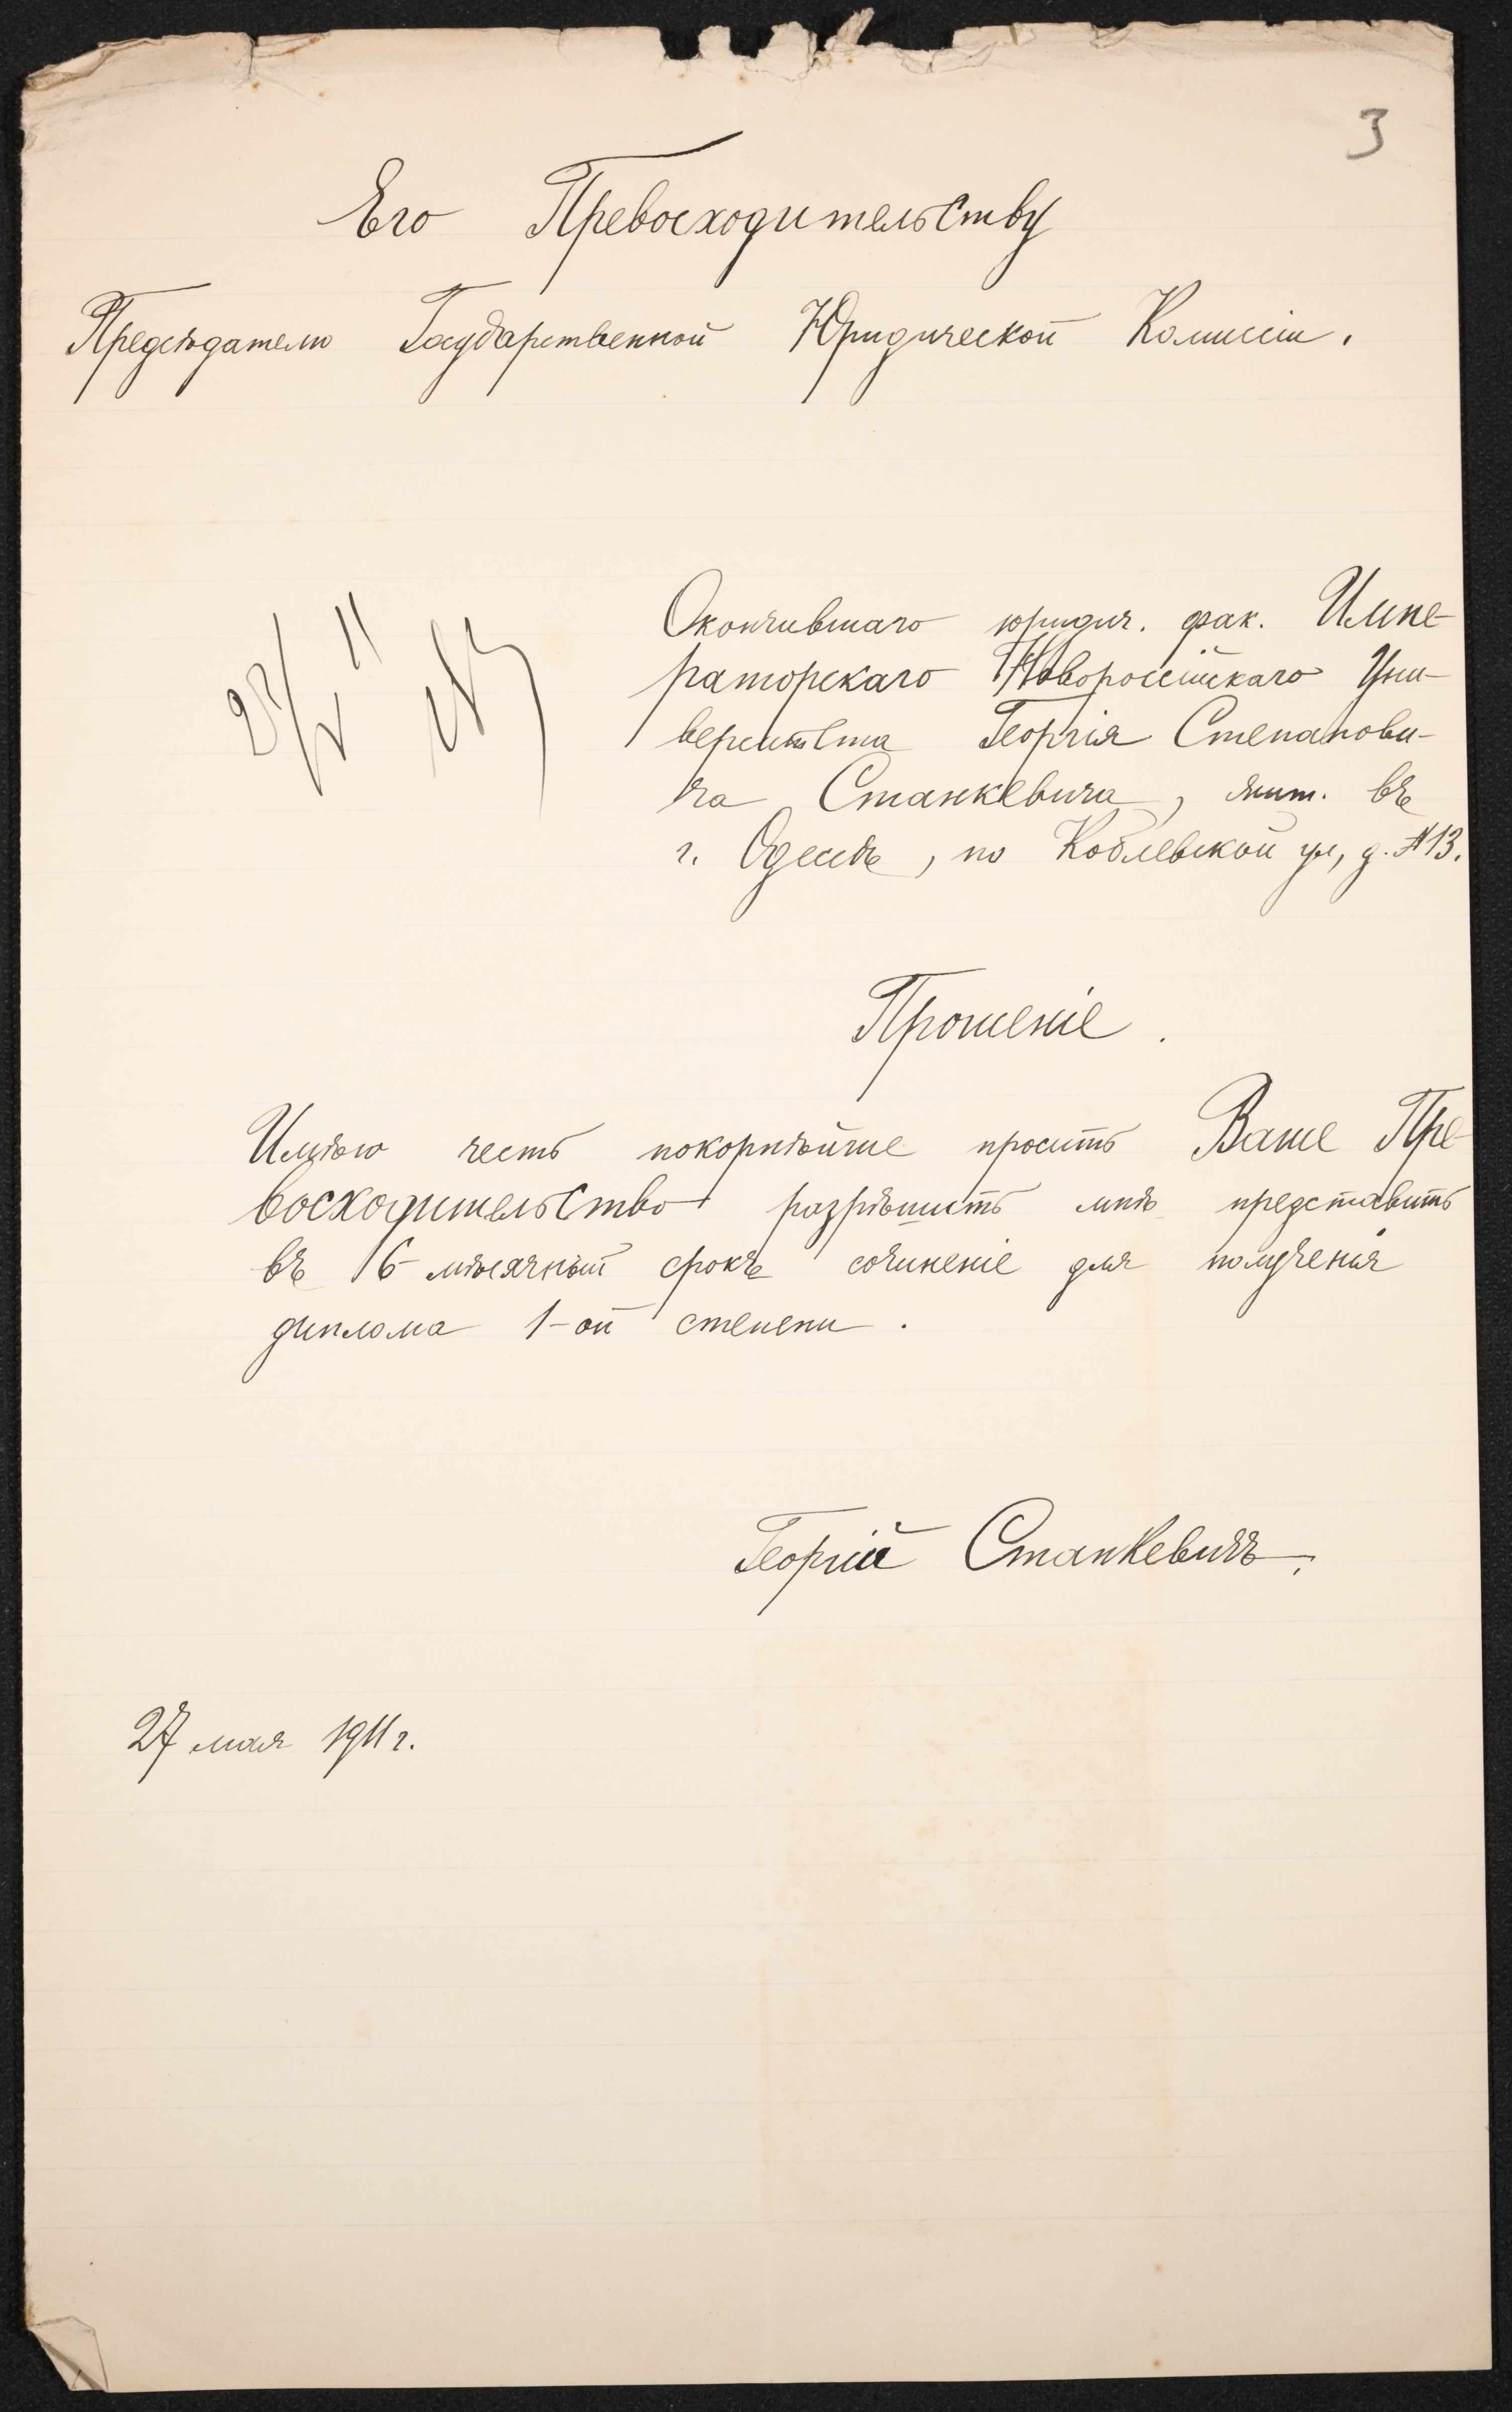 3
Его Превосходительству
Предсѣдателю Государственной Юридической Комиссіи.
Окончившаго юридич. фак. Импе-
раторскаго Новороссійскаго Уни-
верситета Георгія Степанови-
ча Станкевича, жит. въ
г. Одессѣ, по Коблевской ул, д. № 13.
Прошеніе.
Имѣю честь покорнѣйше просить Ваше Пре-
восходительство разрѣшить мнѣ представить
въ 6-мѣсячный срокъ сочиненіе для полученія
диплома 1-ой степени.
Георгій Станкевичъ.
27 мая 1911 г.